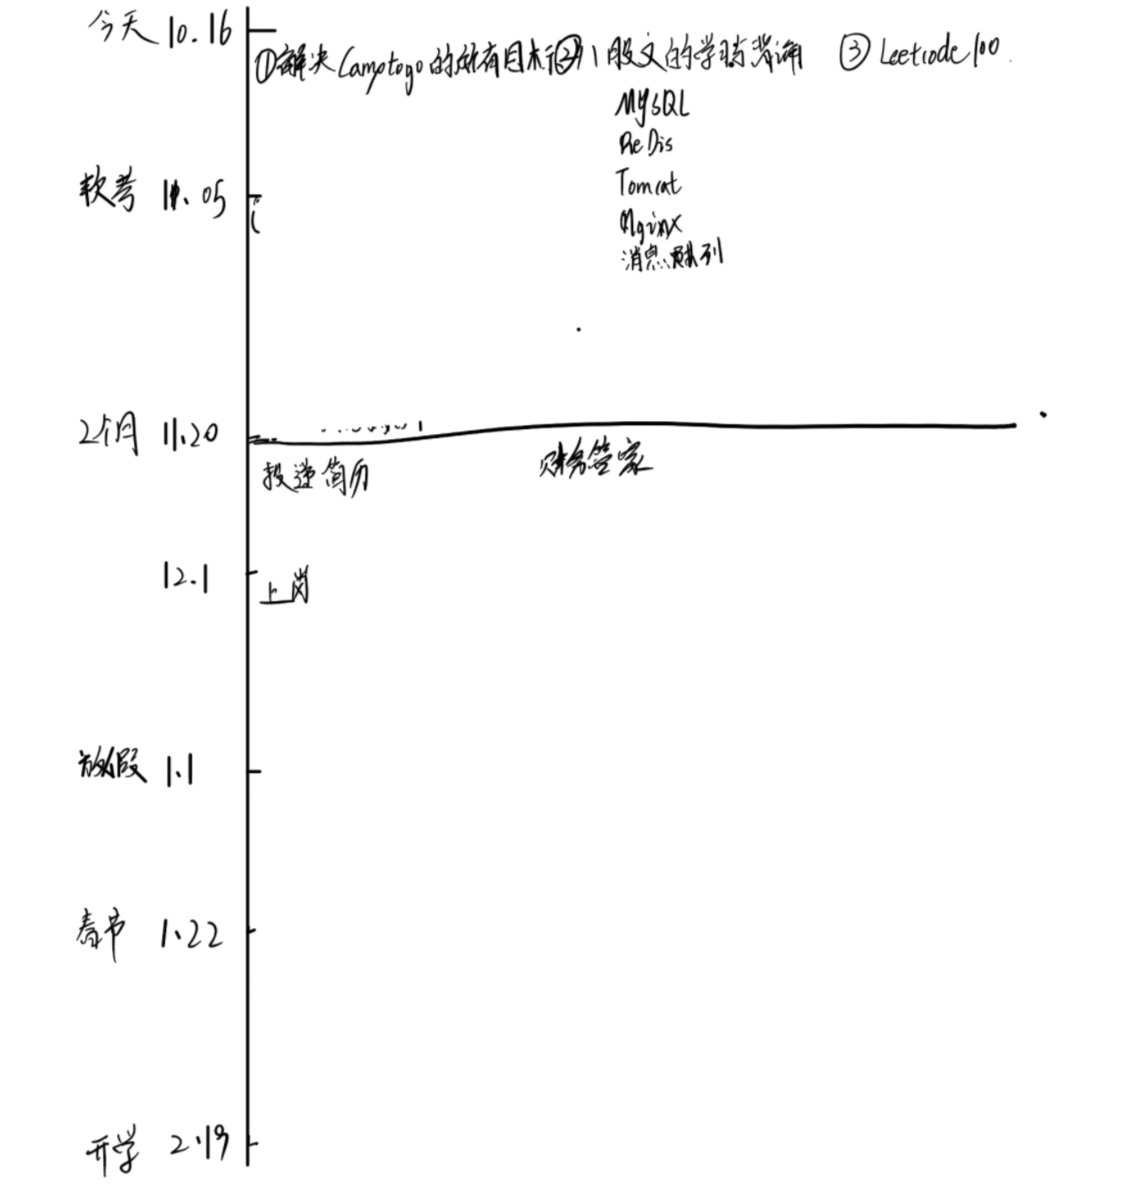 今天 10.16
①解决Camptogo的所有目标 ②八股文的学习与背诵 ③ Leetcode 100
MYSQL
ReDis
Tomcat
Nginx
消息队列
软考 11.05
2个月 11.20
投递简历 财务管家
12.1 上岗
放假 1.1
春节 1.22
开学 2.19